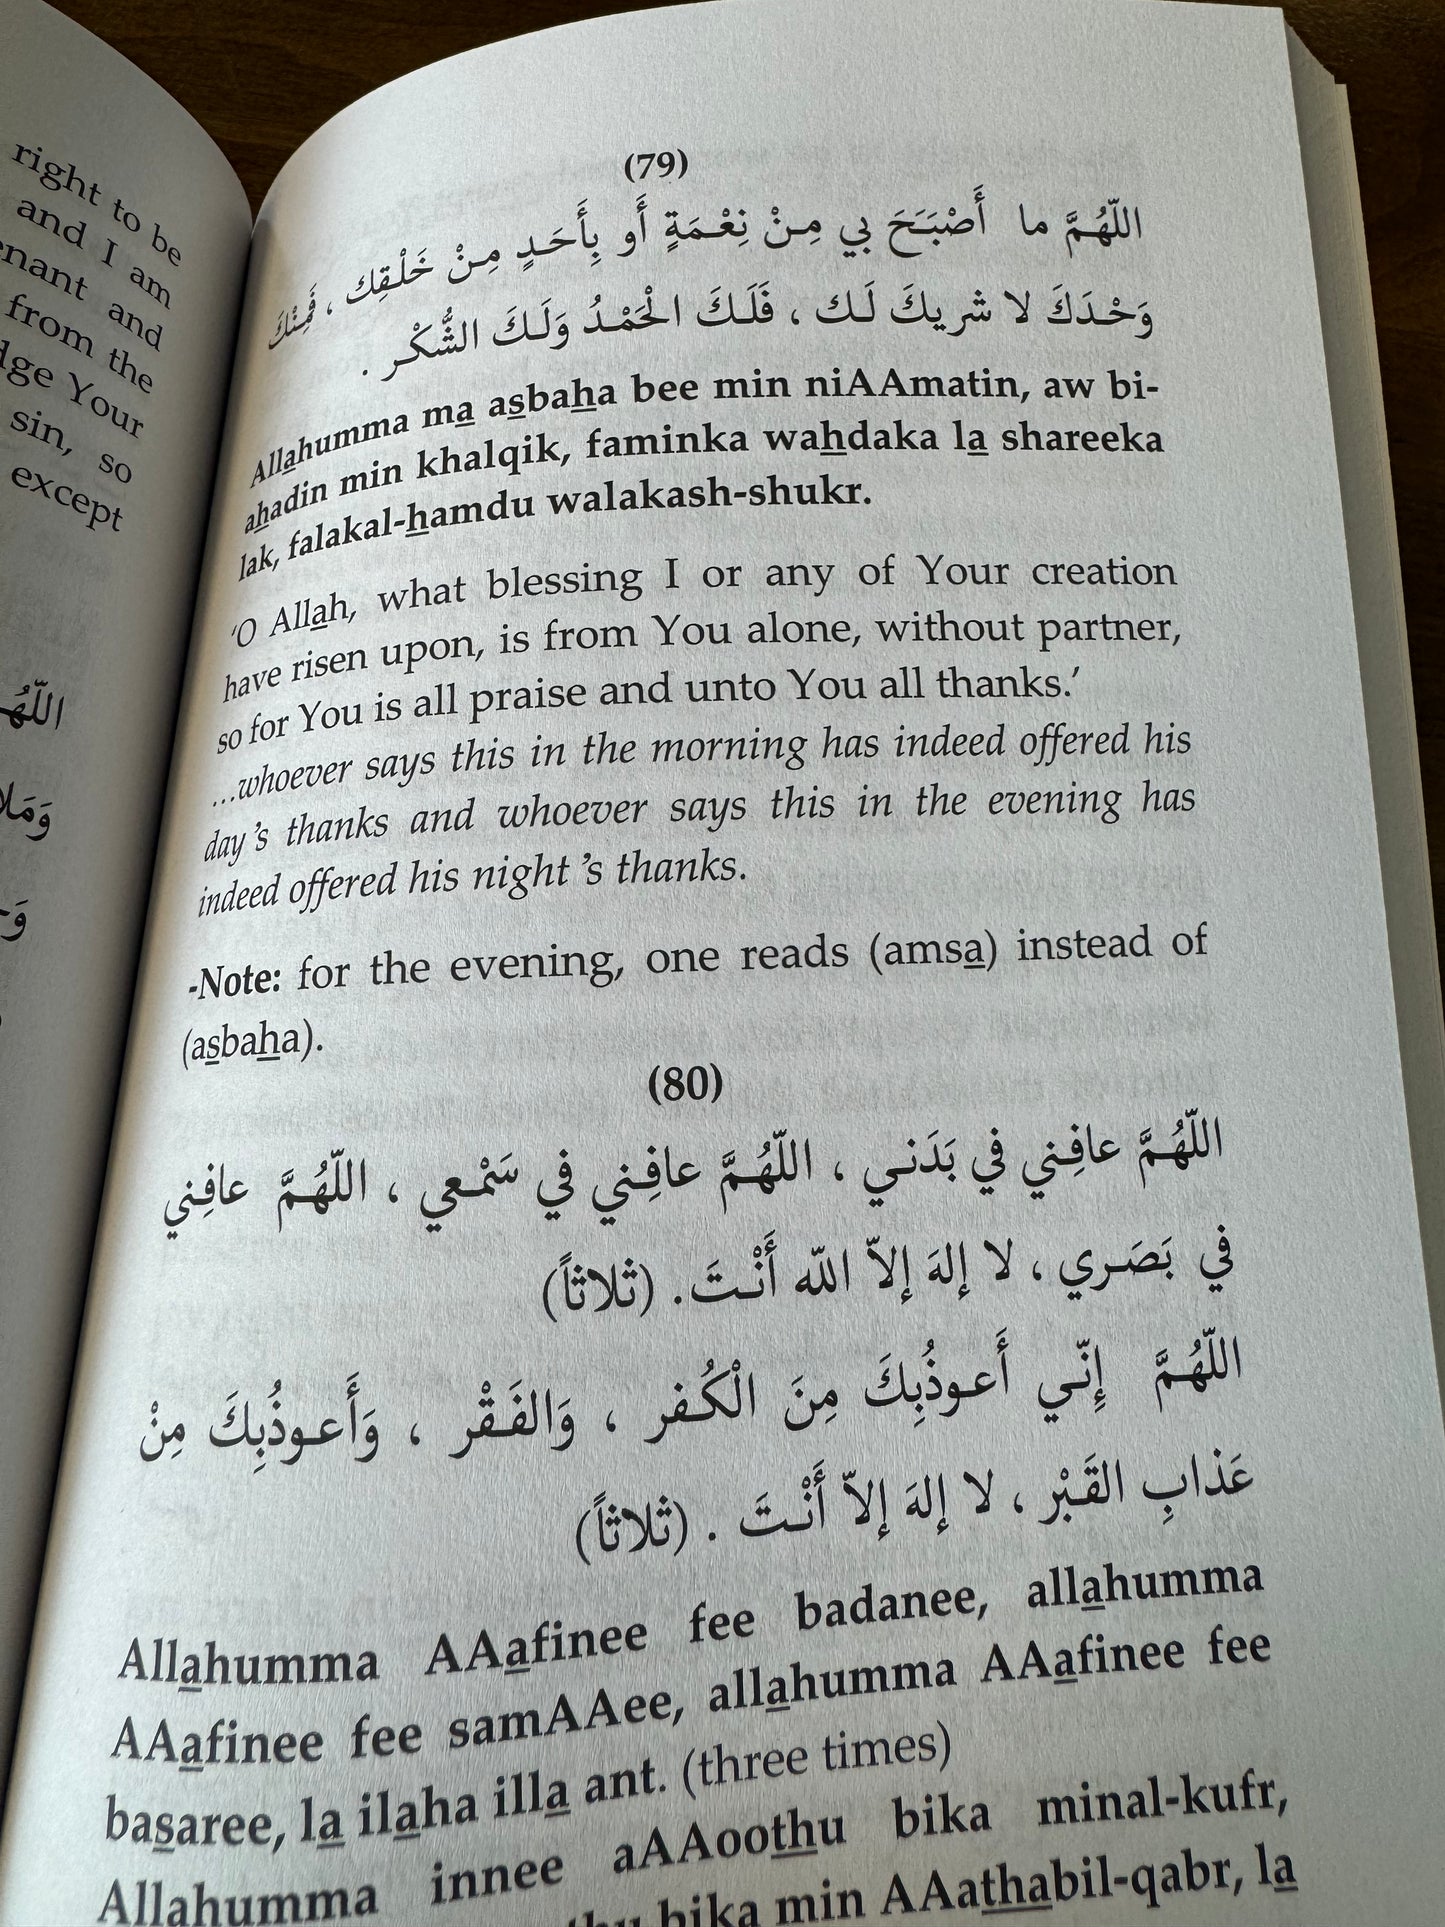 right to be
and I am
enant and
from the
dge Your
sin, so
except
اللّهُ
وَمَلا
(79)
اللّهُمَّ ما أَصْبَحَ بي مِنْ نِعْمَةٍ أَو بِأَحَدٍ مِنْ خَلْقِك ، فَمِنْكَ
وَحْدَكَ لا شريكَ لَك ، فَلَكَ الْحَمْدُ وَلَكَ الشُّكْر .
Allahumma ma asbaha bee min niAAmatin, aw bi-
ahadin min khalqik, faminka wahdaka la shareeka
lak, falakal-hamdu walakash-shukr.
‘O Allah, what blessing I or any of Your creation
have risen upon, is from You alone, without partner,
so for You is all praise and unto You all thanks.’
…whoever says this in the morning has indeed offered his
day’s thanks and whoever says this in the evening has
indeed offered his night ’s thanks.
-Note: for the evening, one reads (amsa) instead of
(asbaha).
(80)
اللّهُمَّ عافِني في بَدَني ، اللّهُمَّ عافِني في سَمْعي ، اللّهُمَّ عافِني
في بَصَري ، لا إلهَ إلاّ اللّه أَنْتَ. (ثلاثاً)
اللّهُمَّ إِنّي أَعوذُبِكَ مِنَ الْكُفر ، وَالفَقْر ، وَأَعوذُبِكَ مِنْ
عَذابِ القَبْر ، لا إلهَ إلاّ أَنْتَ . (ثلاثاً)
Allahumma AAafinee fee badanee, allahumma
AAafinee fee samAAee, allahumma AAafinee fee
basaree, la ilaha illa ant. (three times)
Allahumma innee aAAoothu bika minal-kufr,
bika min AAathabil-qabr, la